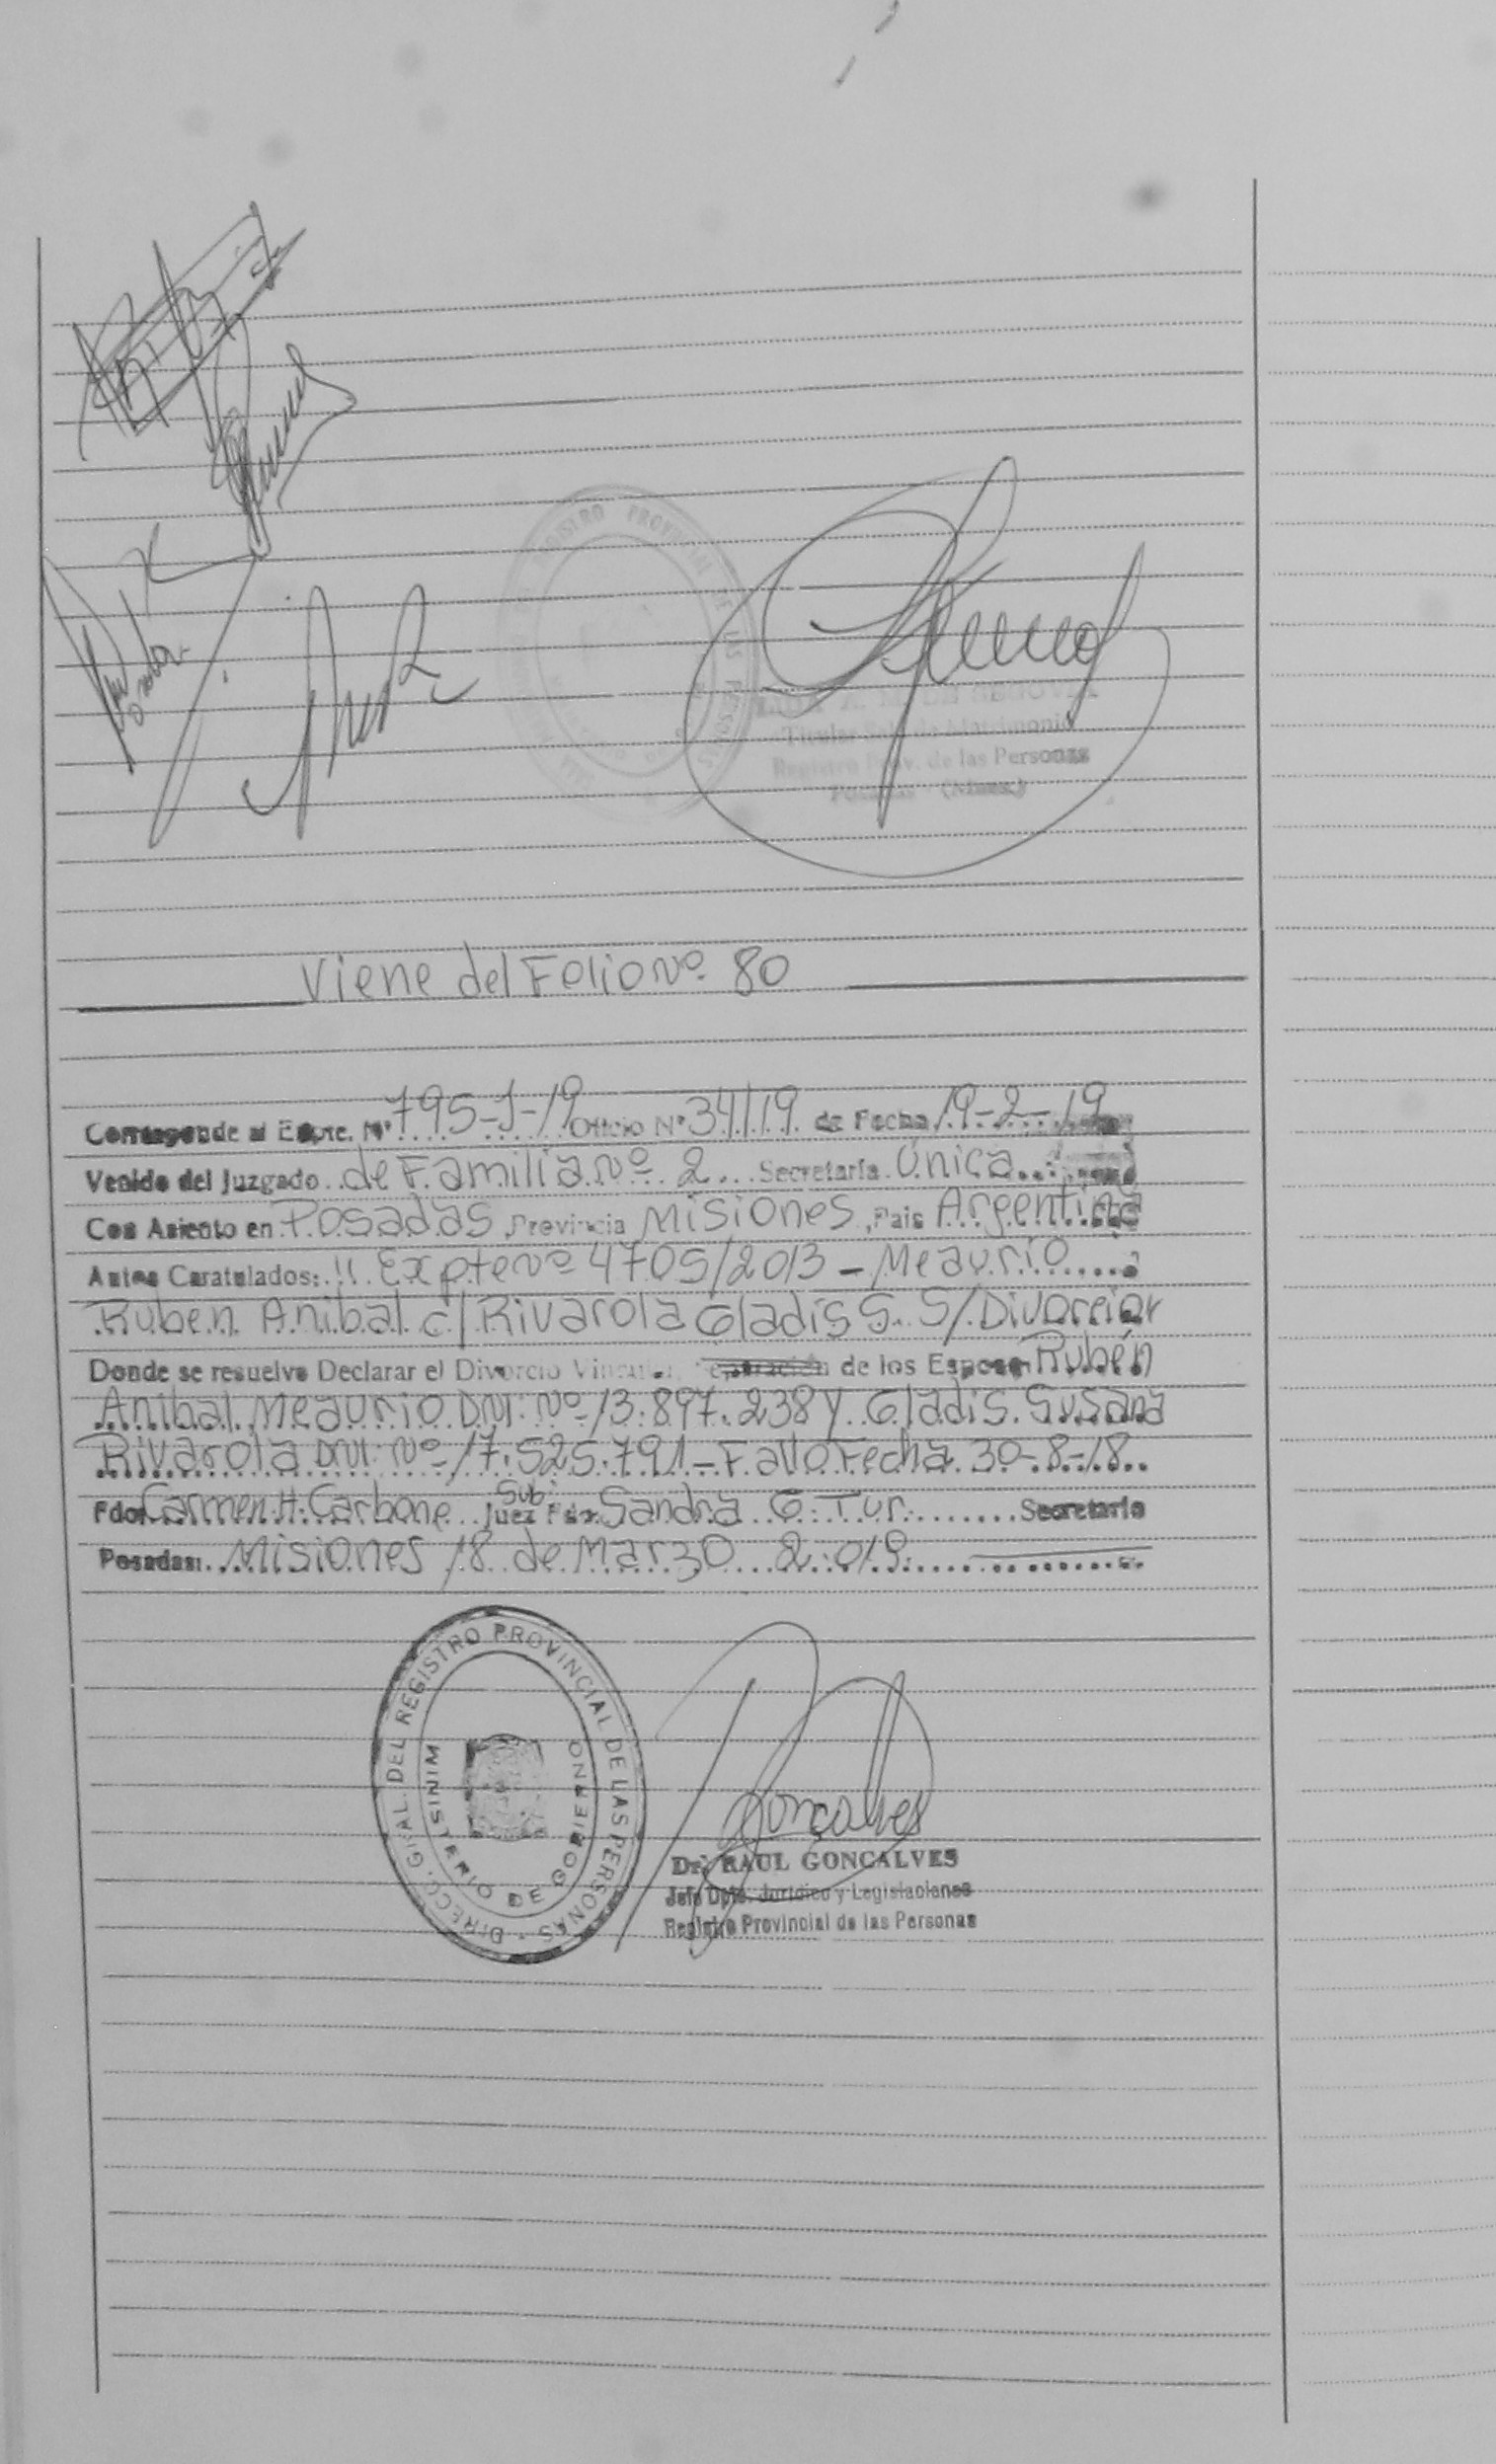 Titular Sala de Matrimonio
Registro Prov. de las Personas
Posadas (Mnes.)
Viene del Folio Nº 80
Corresponde al Expte. Nº 795-J-19 Oficio Nº 34/19 de Fecha 19-2-19
Venido del Juzgado de Familia Nº 2 Secretaría Única
Con Asiento en Posadas, Provincia Misiones, Pais Argentina
Autos Caratulados: " Expte Nº 4705/2013 - Meaurio
Ruben Anibal c/ Rivarola Gladis S. S/ Divorcio"
Donde se resuelve Declarar el Divorcio Vincular Separación de los Esposos Rubén
Anibal Meaurio DNI: Nº 13.897.238 y Gladis Susana
Rivarola DNI: Nº 17.525.791 - Fallo Fecha 30-8-18
Fdo: Carmen H. Carbone Sub. Juez Fdo: Sandra G. Tur Secretario
Posadas: Misiones 18 de Marzo 2.019
DIRECC. GRAL. DEL REGISTRO PROVINCIAL DE LAS PERSONAS
MINISTERIO DE GOBIERNO
Gonçalves
Dr. RAUL GONCALVES
Jefe Dpto. Jurídico y Legislaciones
Registro Provincial de las Personas